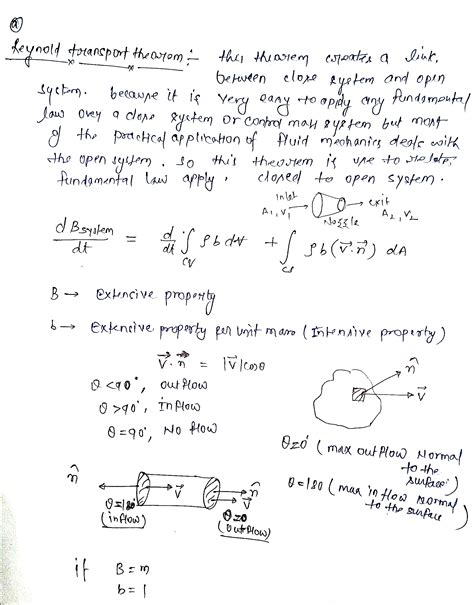 Q
Reynold transport theorem :- this theorem creates a link,
between close system and open
system. because it is very easy to apply any fundamental
law over a close system or control mass system but most
of the practical application of fluid mechanics deals with
the open system. so this theorem is use to relate,
fundamental law apply, closed to open system.
inlet → exit
A1, V1 A2, V2
Nozzle
dBsystem/dt = d/dt ∫cv ρ b dV + ∫cs ρb (v⃗.n⃗) dA
B → Extencive property
b → Extencive property per unit mass (Intensive property)
V⃗.n⃗ = |V|cosθ
θ <90°, outflow
θ >90°, Inflow
θ =90°, No flow
n̂
V⃗
θ=0° (max outflow Normal
to the
surface)
θ=180 (max inflow normal
to the surface)
n̂ V⃗ V⃗ n̂
θ=180° θ=0
(inflow) (outflow)
if B = m
b = 1